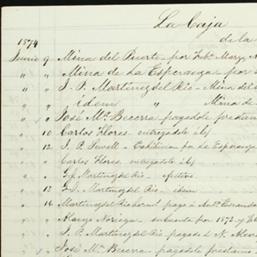 La Caja
de la
1874
Junio 9 Mina del Puerto por Feb. Marzo
" " Mina de la Esperanza por
" " J. P. Martinez del Rio - Mina del
" " idem Mina de
" " José Ma. Becerra pagadole prestam
" 10 Carlos Flores entregadole s/c
" 12 J. P. Sewell - Exhibicion por la Esperanza
" " Carlos Flores entregadole s/c
" " J. P. Martinez del Rio
" 13 J. P. Martinez del Rio idem
" 14 Martinez del Rio pago á
" " Alonzo Noriega su cuenta por 1873
" " J. P. Martinez del Rio pagado á N.
" " José Ma. Becerra pagadole prestamo